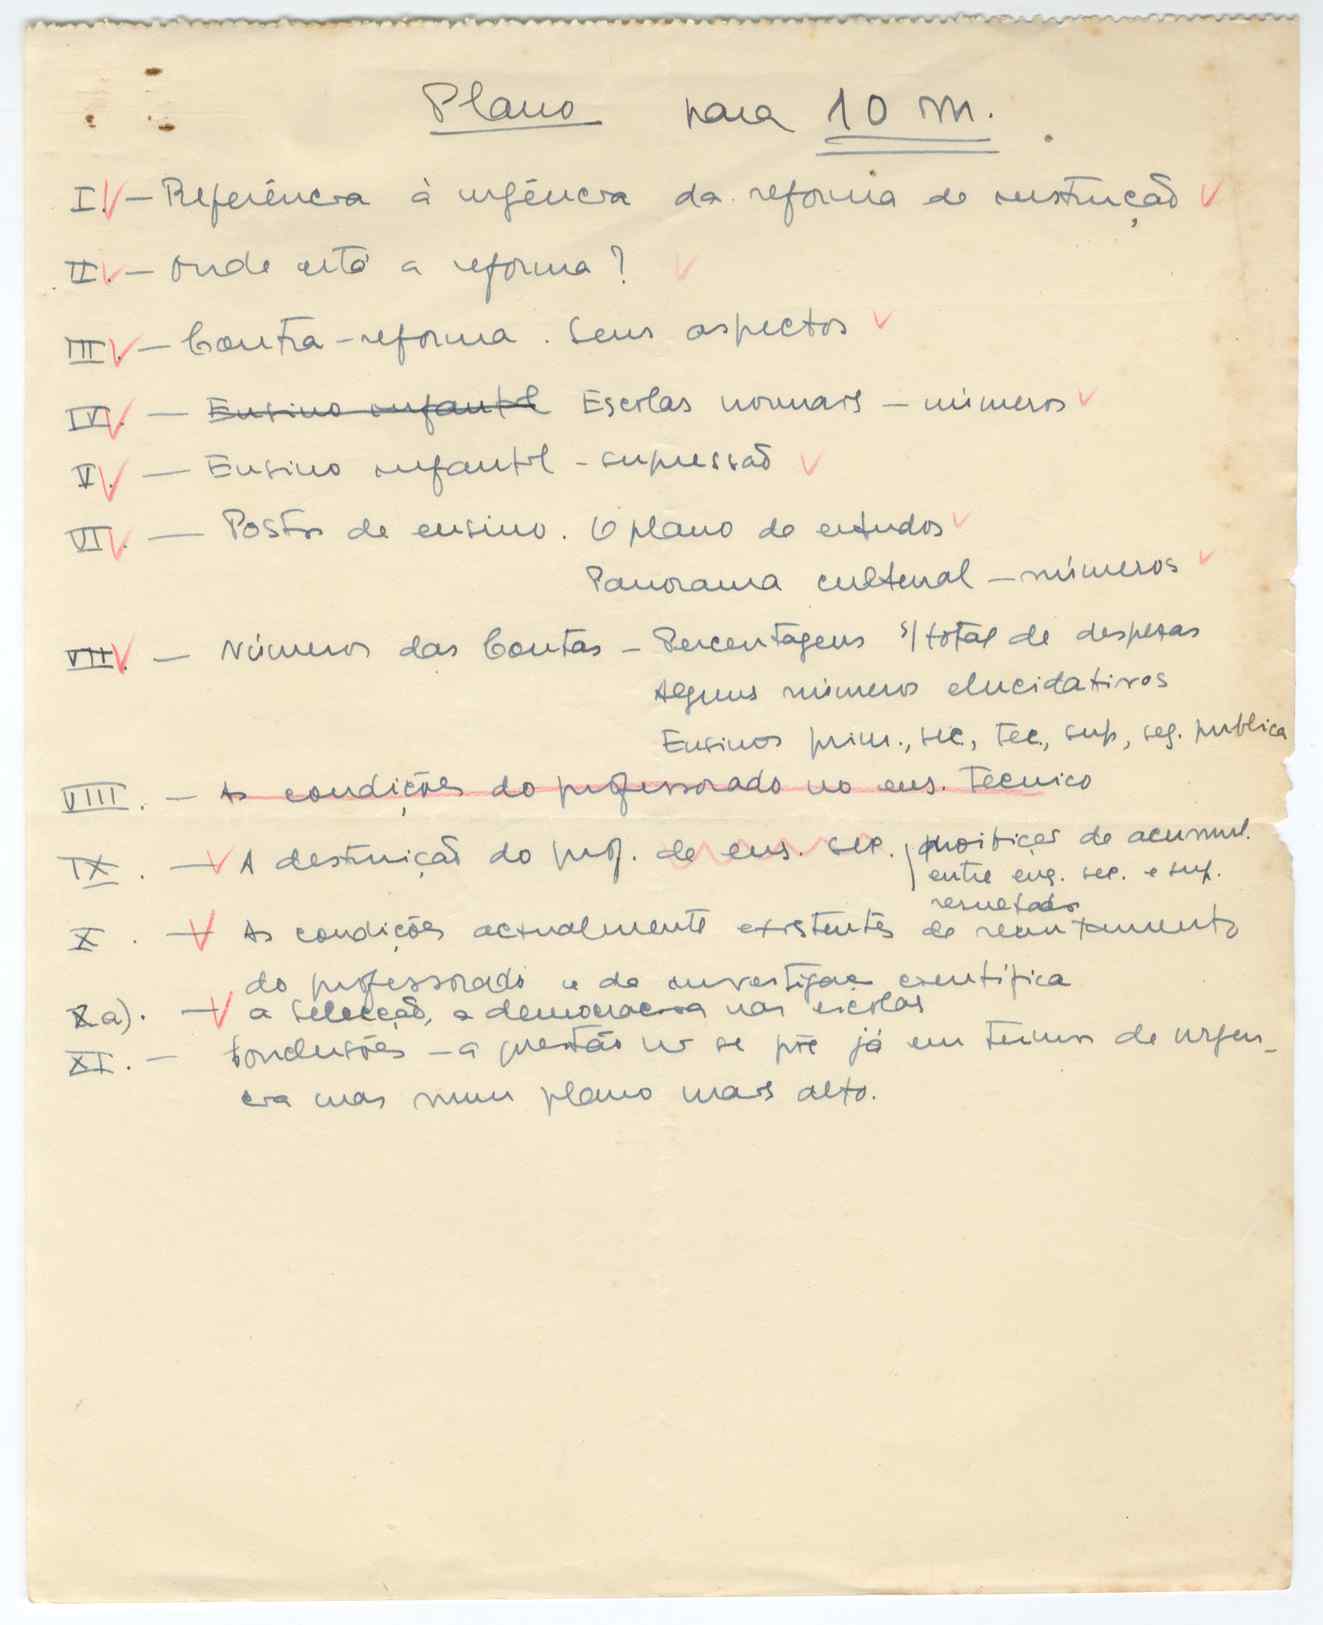 Plano para 10 m.
I - Referência à urgência da reforma de instrução
II - Onde está a reforma?
III - Contra-reforma. Seus aspectos
IV - Ensino infantil Escolas normais - números
V - Ensino infantil - supressão
VI - Postos de ensino. O plano de estudos
Panorama cultural - números
VII - Números das Contas - Percentagens s/ total de despesas
Alguns números elucidativos
Ensinos prim., sec., tec., sup., seg. publica
VIII. - As condições do professorado no ens. tecnico
IX. - A destruição do prof. de ens. sec., proibição de acumul.
entre ens. sec. e sup.
resultados
X. - As condições actualmente existentes de recrutamento
do professorado e da investigaç científica
Xa). - a selecção, a democracia nas escolas
XI. - Conclusões - a questão não se põe já em termos de urgên-
cia mas num plano mais alto.